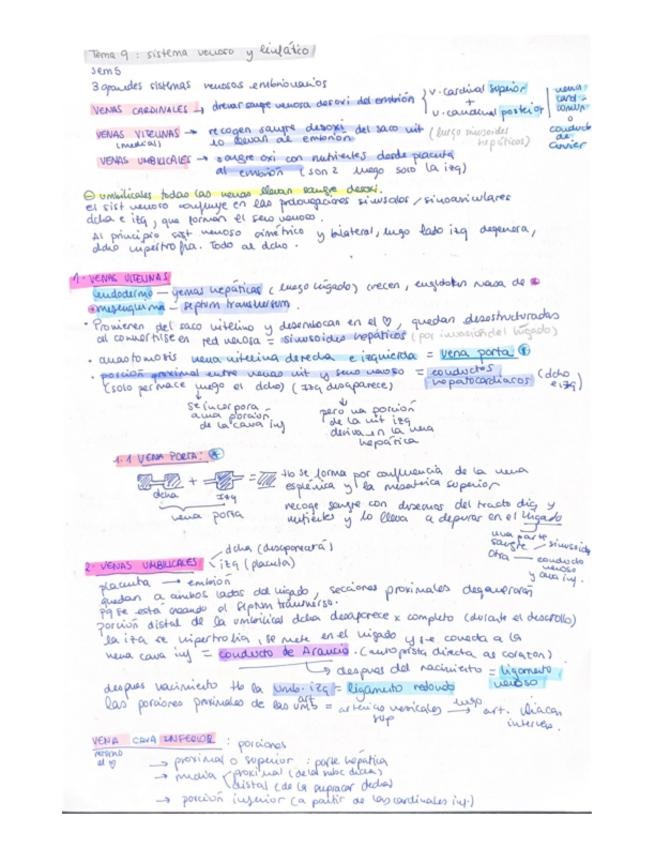 Tema 9 : sistema venoso y linfático
sem 5
3 grandes sistemas venosos embrionarios
VENAS CARDINALES → drenar sangre venosa desoxi del embrión { v. cardinal superior + v. cardinal posterior | vena card. común o conducto de Cuvier
VENAS VITELINAS → recogen sangre desoxi del saco vit (luego sinusoides
lo llevan al embrión hepáticos)
VENAS UMBILICALES → sangre oxi con nutrientes desde placenta
al embrión (son 2 luego solo la izq)
⊖ umbilicales todas las venas llevan sangre desoxi.
el sist venoso confluye en las prolongaciones sinusales / sinoauriculares
dcha e izq, que forman el seno venoso.
Al principio sist venoso simétrico y bilateral, luego lado izq degenera,
dcho hipertrofia. Todo al dcho.
1. VENAS VITELINAS
endodermo — yemas hepáticas (luego hígado) crecen, engloban masa de
mesénquima — septum transversum.
· Provienen del saco vitelino y desembocan en el ♡, quedan desestructuradas
al convertirse en red venosa = sinusoides hepáticos (por invasión del hígado)
· anastomosis vena vitelina derecha e izquierda = vena porta
· porción proximal entre venas vit y seno venoso = conductos hepatocardiacos (dcho e izq)
(solo permace luego el dcho) (Izq desaparece)
se incorpora a una porción de la cava inf
pero una porción de la vit izq deriva en la vena hepática
1.1 VENA PORTA:
dcha + Izq = tb se forma por confluencia de la vena
esplénica y la mesentérica superior
vena porta
recoge sangre con diversos del tracto dig y
nutrientes y lo lleva a depurar en el hígado
una parte sangre / sinusoide
otra — conducto venoso y cava inf.
2. VENAS UMBILICALES
dcha (desaparecerá)
izq (placenta)
placenta → embrión
quedan a ambos lados del hígado, secciones proximales degeneraran
pq se está creando el septum transverso.
porción distal de la umbilical dcha desaparece x completo (durante el desarrollo)
la izq se hipertrofia, se mete en el hígado y se conecta a la
vena cava inf = conducto de Arancio. (autopista directa al corazón)
→ despues del nacimiento = ligamento venoso
despues nacimiento tb la umb. izq = ligamento redondo
las porciones proximales de las art umb = arterias vesicales sup luego → art. iliacas internas.
VENA CAVA INFERIOR : porciones
retorno al ♡
→ proximal o superior : parte hepática
→ media
proximal (de la subc dcha)
distal (de la supracar dcha)
→ porción inferior (a partir de las cardinales inf.)